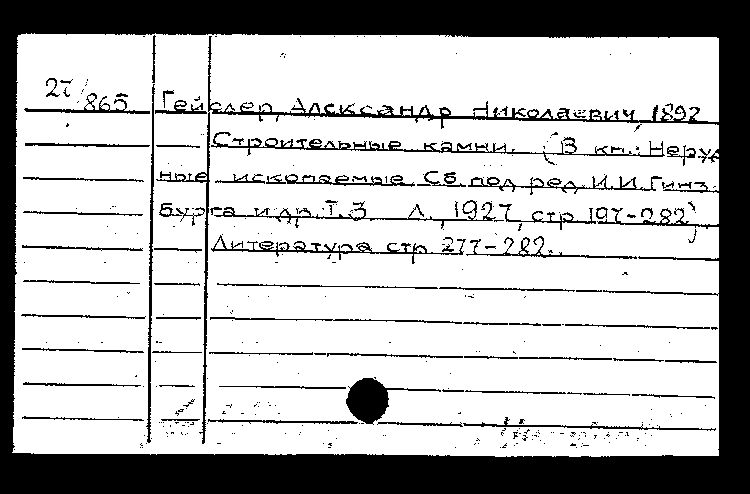 27/865 Гейслер, Александр Николаевич, 1892
Строительные камни. (В кн.: Неруд
ные ископаемые Сб. под ред. И.И. Гинз-
бурга и др. Т. 3 Л., 1927, стр. 197-282)
Литература стр. 277-282.